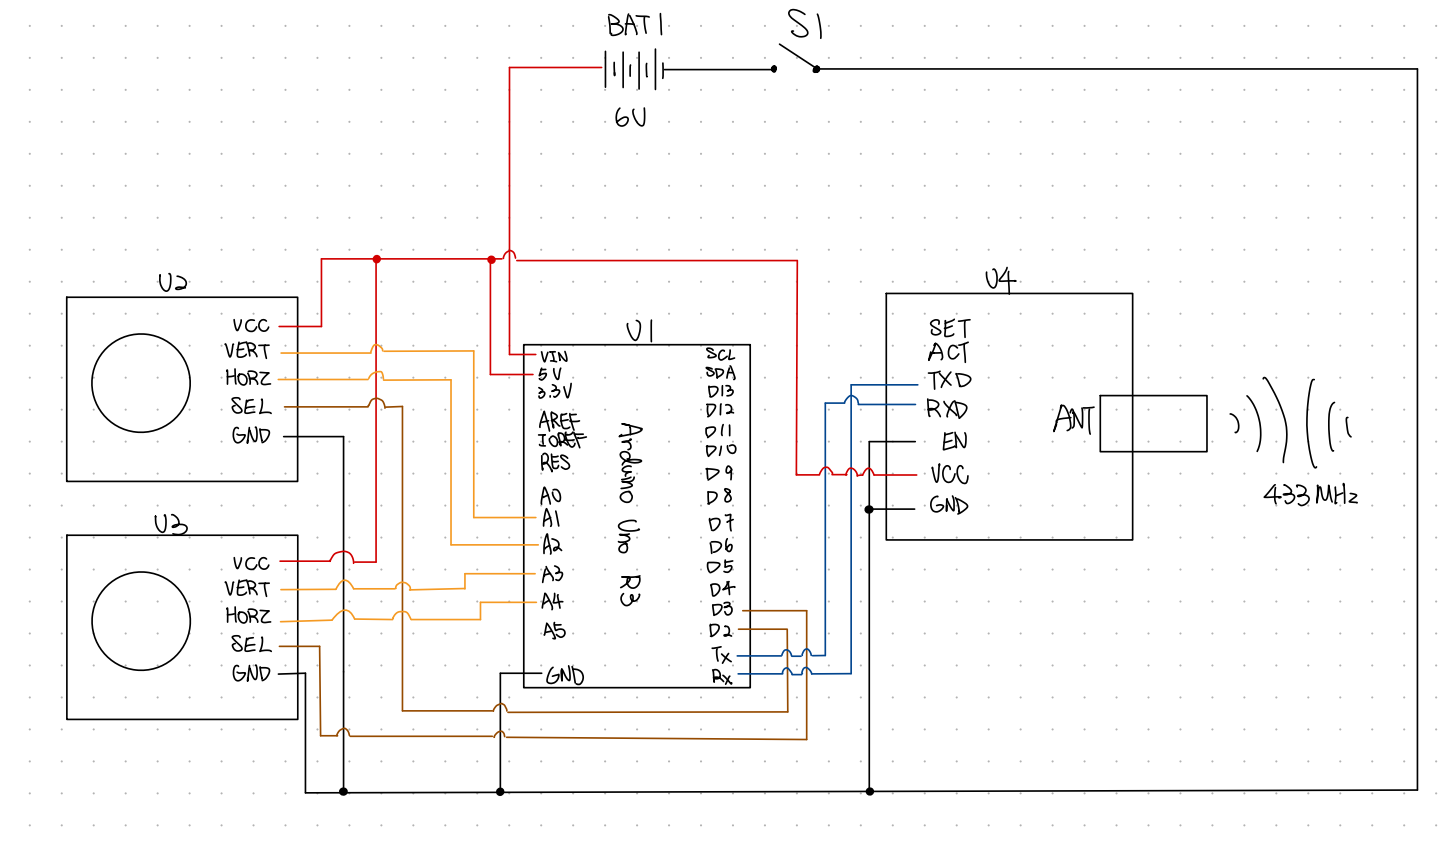 BAT1
S1
6V
U2
VCC
VERT
HORZ
SEL
GND
U3
VCC
VERT
HORZ
SEL
GND
U1
VIN
5V
3.3V
AREF
IOREF
RES
A0
A1
A2
A3
A4
A5
GND
Arduino Uno R3
SCL
SDA
D13
D12
D11
D10
D9
D8
D7
D6
D5
D4
D3
D2
Tx
Rx
U4
SET
ACT
TXD
RXD
EN
VCC
GND
ANT
433MHz